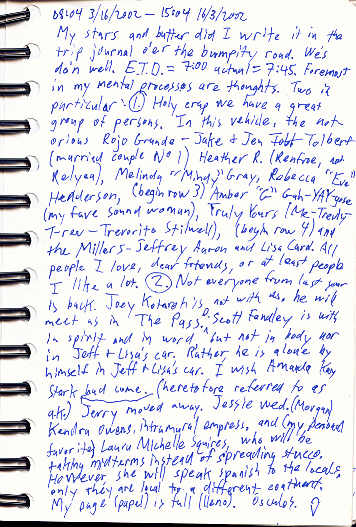 08:04 3/16/2002 – 15:04 16/3/2002
My stars and butter did I write it in the
trip journal o'er the bumpity road. We's
do'n well. E.T.D. = 7:00 actual = 7:45. Foremost
in my mental processes are thoughts. Two in
particular: ① Holy crap we have a great
group of persons. In this vehicle, the not-
orious Rojo Grande - Jake & Jen Tolbert
(married couple No 1) Heather R. (Renfroe, not
Relyea), Melinda "Mindy" Gray, Rebecca "Eve"
Hedderson, (begin row 3) Amber "G" Gah-YAY
(my fave sound woman), Truly Yours (Me-Trevly-
T-rev-Trevorito Stilwell), (begin row 4) and
the Millers-Jeffrey Aaron and Lisa Card. All
people I love, dear friends, or at least people
I like a lot. ② Not everyone from last year
is back. Joey is, not with he will
meet us in The Pass. Scott Fandley is with
in spirit and in word, but not in body nor
in Jeff + Lisa's car. Rather, he is alone by
himself in Jeff + Lisa's car. I wish Amanda Kay
Stark had come. (heretofore referred to as
aks) Jerry moved away. Jessie wed. (Morgan)
Kendra Owens, intramural empress, and (my personal
favorite) Laura Michelle Squires, who will be
taking midterms instead of spreading stucco.
However, she will speak spanish to the locals,
only they are local to a different continent.
My page (papel) is full (lleno). Osculos.